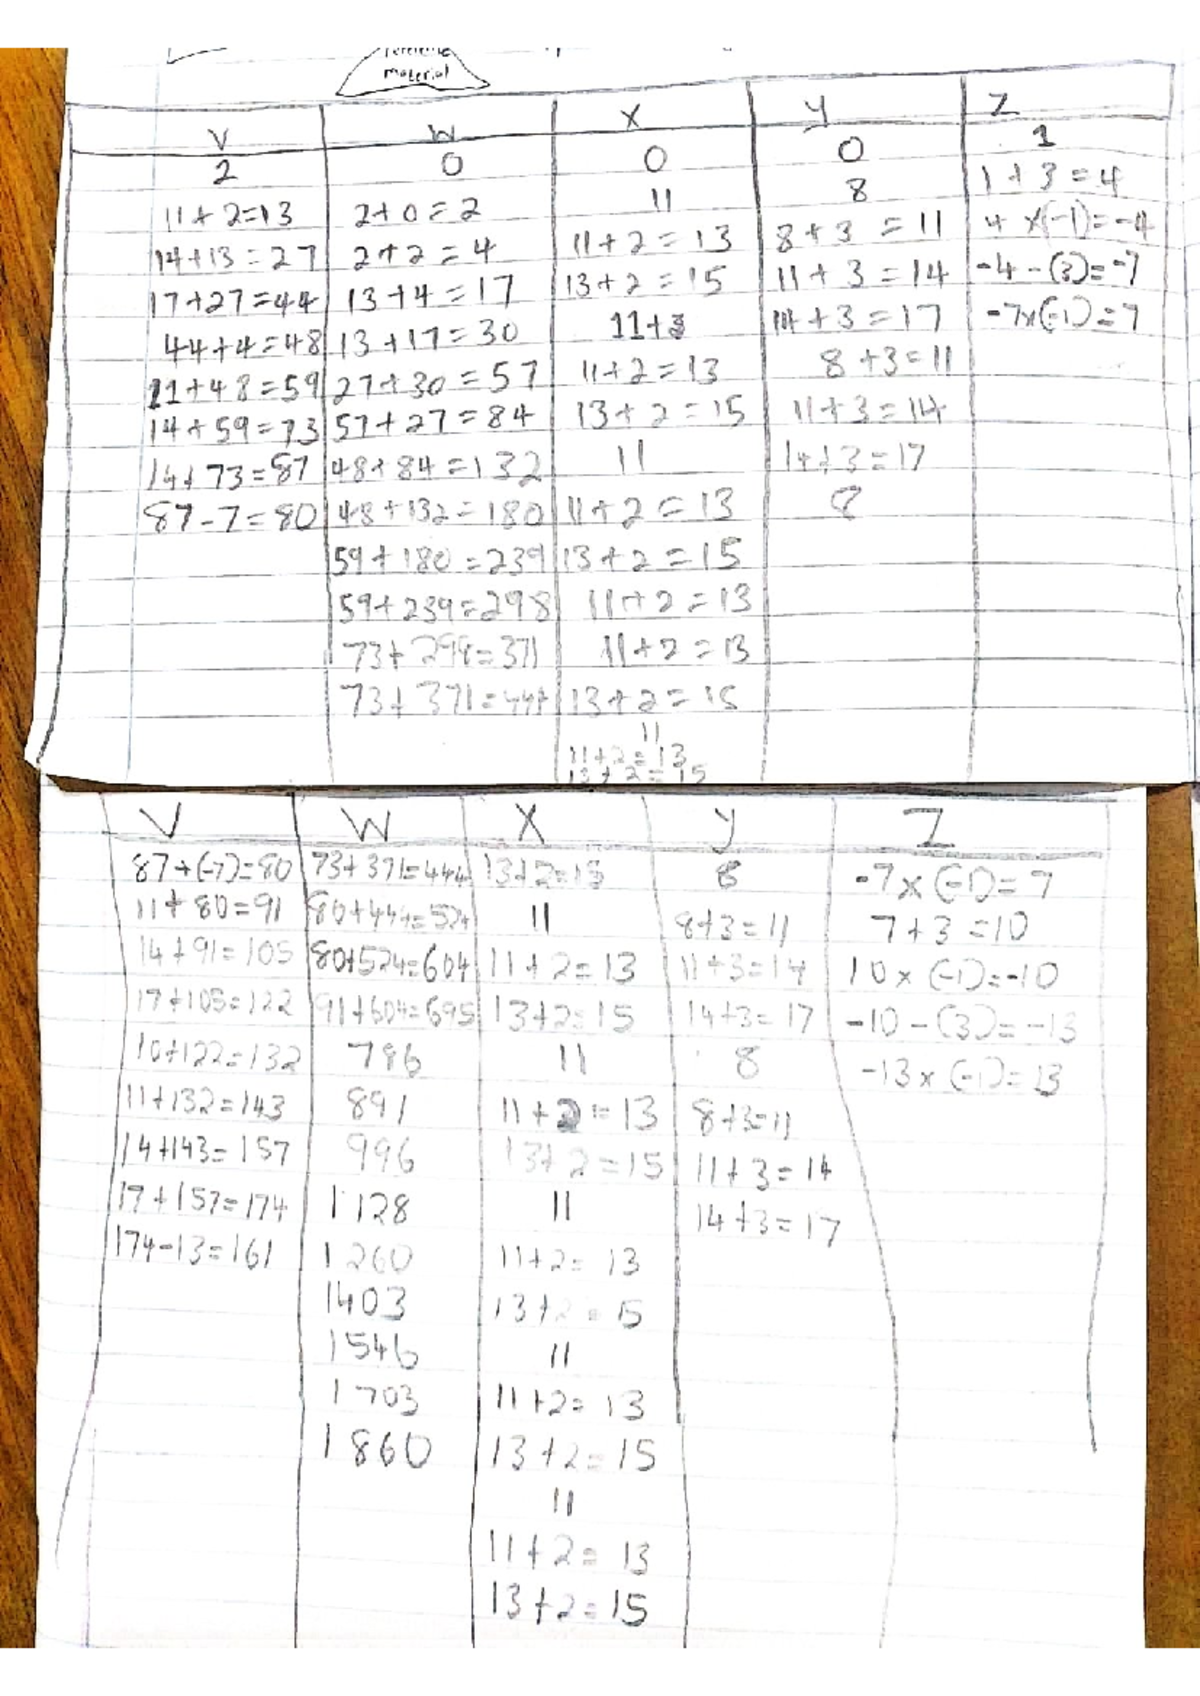 material
V W X Y Z
2 0 0 0 1
11 + 2=13 2+0=2 11 8 1+3=4
14+13=27 2+2=4 11+2=13 8+3=11 4 x(-1)=-4
17+27=44 13+4=17 13+2=15 11+3=14 -4-(3)=-7
44+4=48 13+17=30 11+3 14+3=17 -7x(-1)=7
11+48=59 27+30=57 11+2=13 8+3=11
14+59=73 57+27=84 13+2=15 11+3=14
14+73=87 48+84=132 11 14+3=17
87-7=80 48+132=180 11+2=13 8
59+180=239 13+2=15
59+239=298 11+2=13
73+298=371 11+2=13
73+371=444 13+2=15
11
11+2=13
13+2=15
V W X Y Z
87+(-7)=80 73+371=444 13+2=15 8 -7x(-1)=7
11+80=91 80+444=524 11 8+3=11 7+3=10
14+91=105 80+524=604 11+2=13 11+3=14 10x(-1)=-10
17+105=122 91+604=695 13+2=15 14+3=17 -10-(3)=-13
10+122=132 786 11 8 -13x(-1)=13
11+132=143 891 11+2=13 8+3=11
14+143=157 996 13+2=15 11+3=14
17+157=174 1128 11 14+3=17
174-13=161 1260 11+2=13
1403 13+2=15
1546 11
1703 11+2=13
1860 13+2=15
11
11+2=13
13+2=15